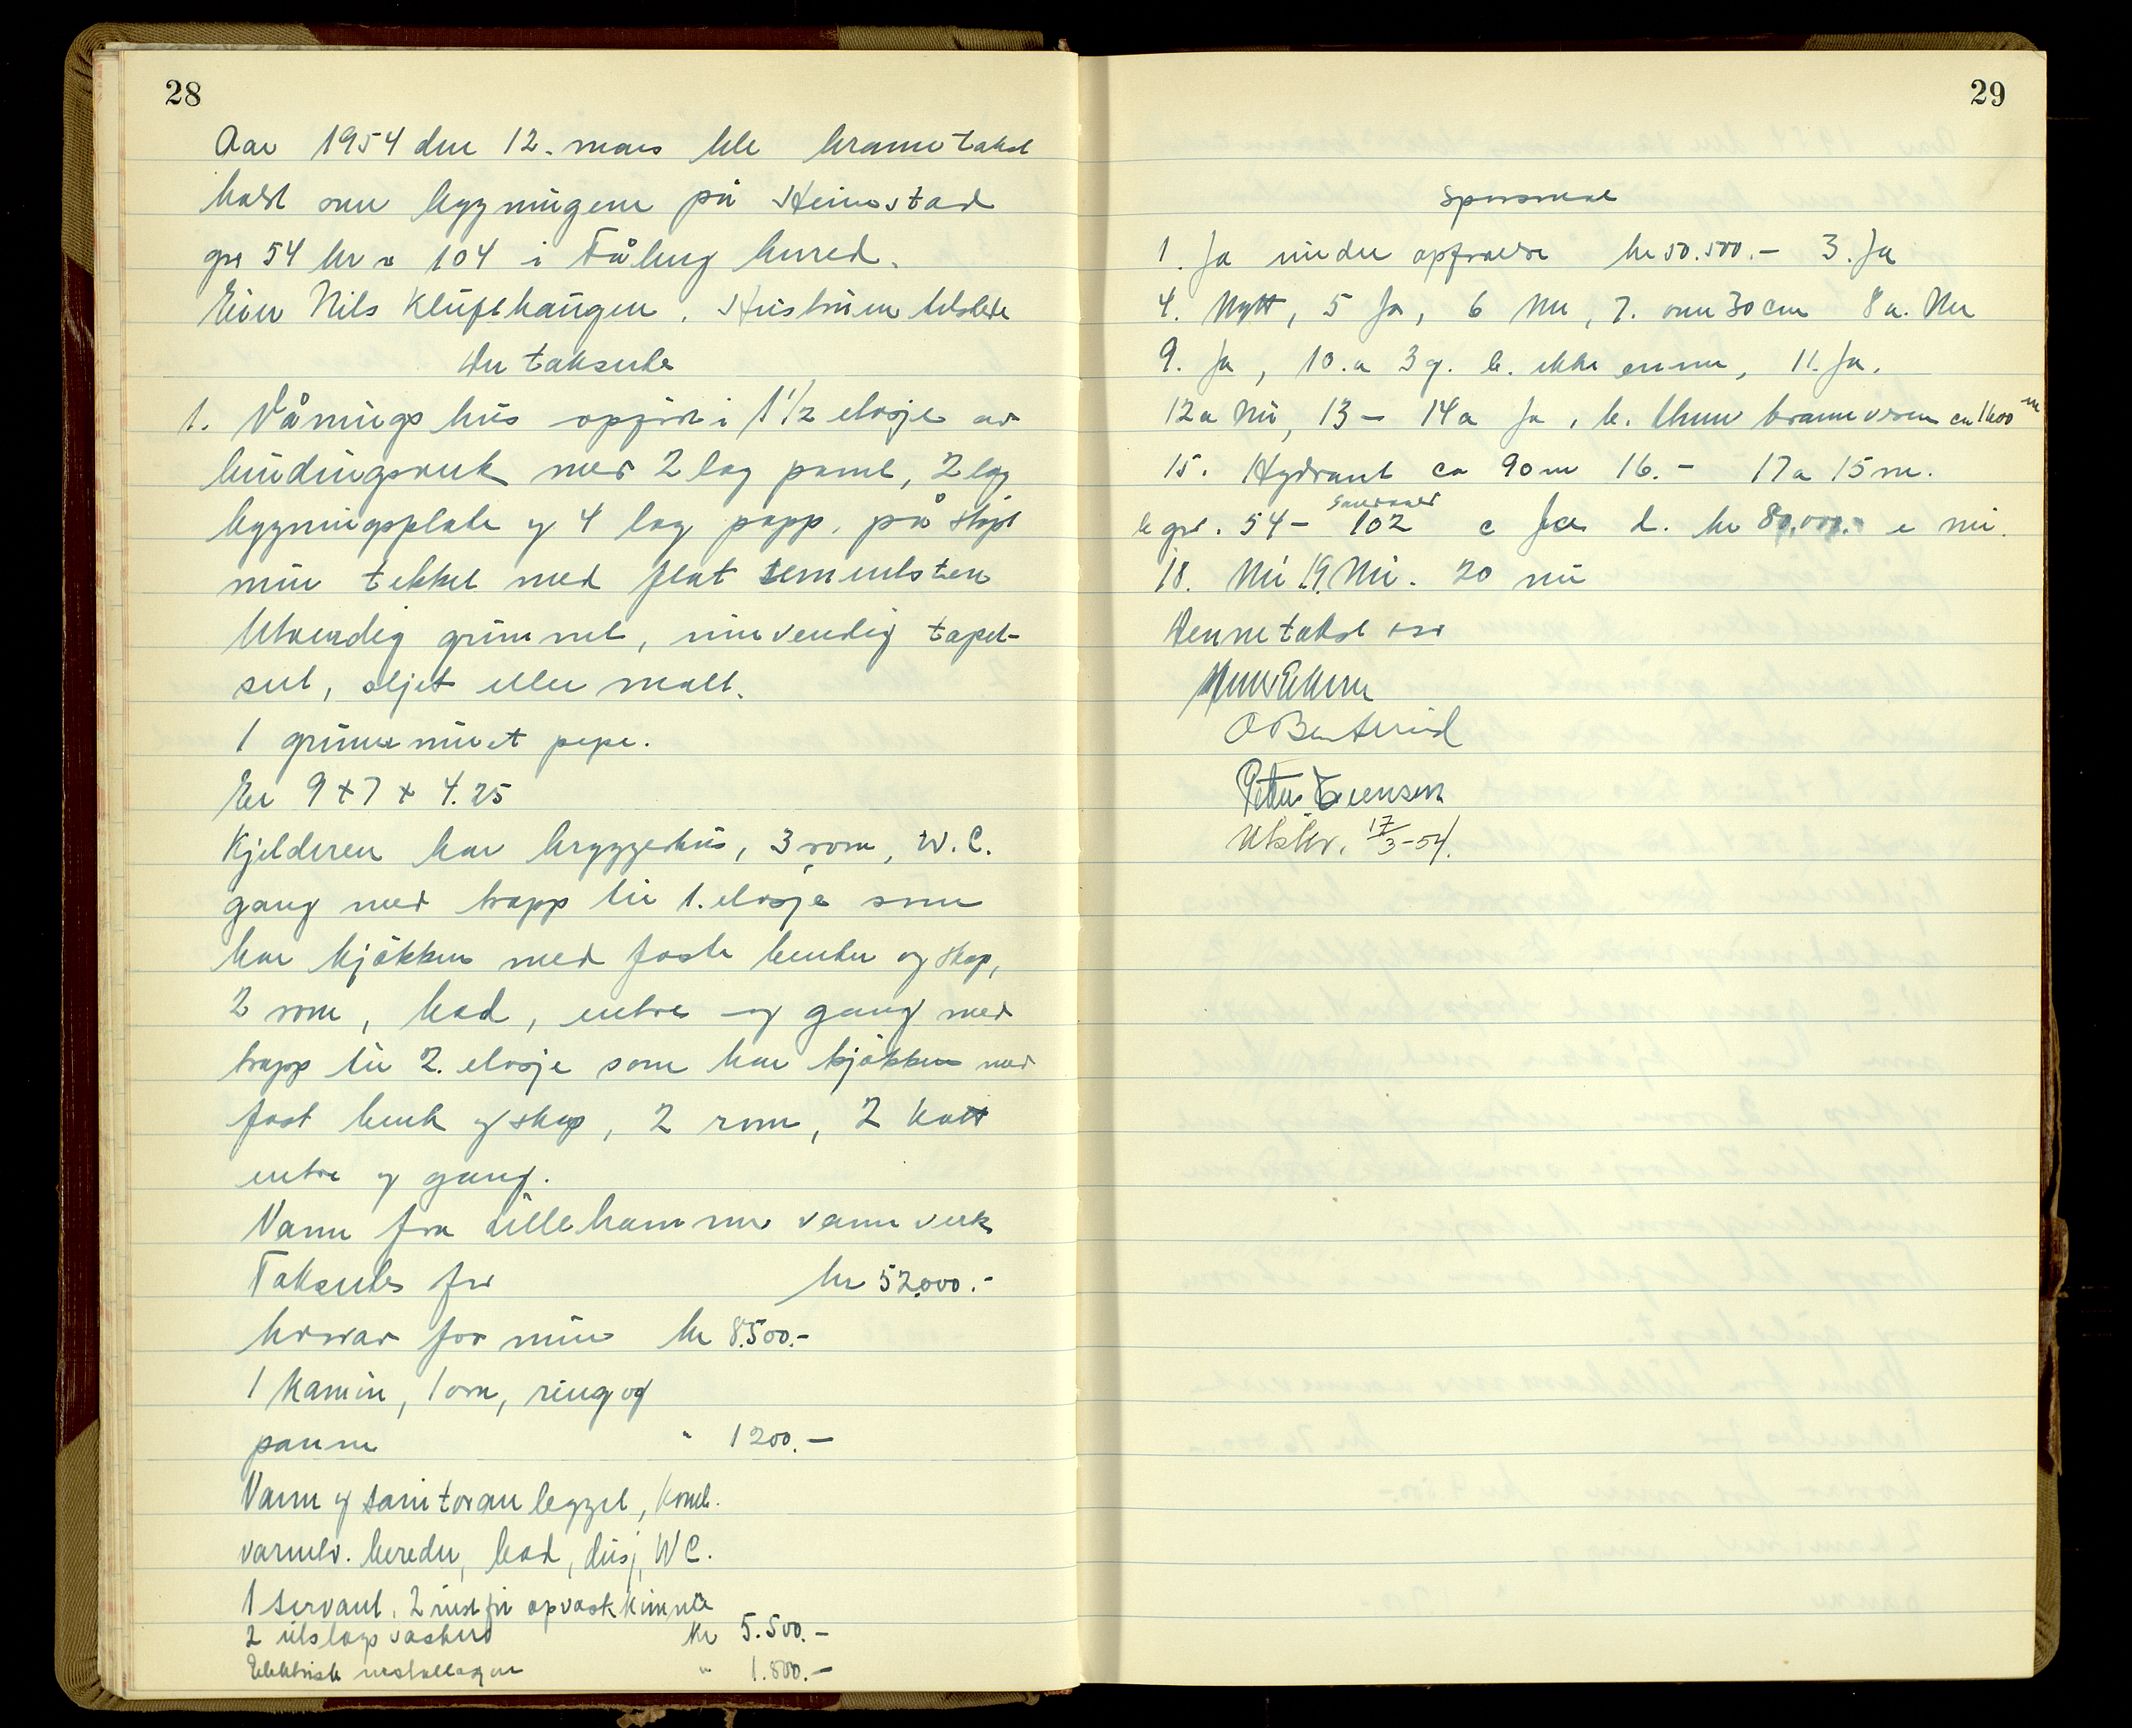 28
Aar 1954 den 12. mars ble branntakst
holdt over bygningene på Heimstad
gnr 54 br n 104 i Fåberg herred.
Eier Nils Klufthaugen. Hustruen tilstede
Der takserte
1. Våningshus oppført i 1 1/2 etasje av
bindingsverk med 2 lag panel, 2 lag
bygningsplate og 4 lag papp, på støpt
mur tekket med flat sementsten
Utvendig grunnet, innvendig tapet-
sert, oljet eller malt.
1 grunnmuret pipe.
Er 9 + 7 + 4.25
Kjelderen har bryggerhus, 3 rom, W.C.
gang med trapp til 1. etasje som
har kjøkken med faste benker og skap,
2 rom, bad, entre og gang med
trapp til 2. etasje som har kjøkken med
fast benk og skap, 2 rom, 2 kott
entre og gang.
Vann fra Lillehammer vannverk
Takseres for kr 52.000.-
herav for mur kr 8.500.-
1 kamin, 1 ovn, ring og
panne " 1200.-
Vann og sanitæranlegget, komb.
varmtv. bereder, bad, dusj, WC.
1 servant, 2 rustfri opvaskkummer
2 utslagsvasker kr 5.500.-
Elektrisk installasjon " 1.800.-
29
Spørsmål
1. Ja under opførelse kr 50.500.- 3. Ja
4. Nytt, 5 Ja, 6 Nei, 7. over 30 cm 8a. Nei
9. Ja, 10.a 3 og. b. ikke ennu, 11. Ja.
12a Nei, 13 - 14a Ja, b. Lhmr brannvesen ca 1600 m
15. Hydrant ca 90 m 16. - 17a 15 m.
b gnr. 54 - 102 c Ja d. kr 80.000.- e nei.
18. Nei 19. Nei. 20 nei
Denne takst
Petter Evensen
Utskr. 17/3-54.